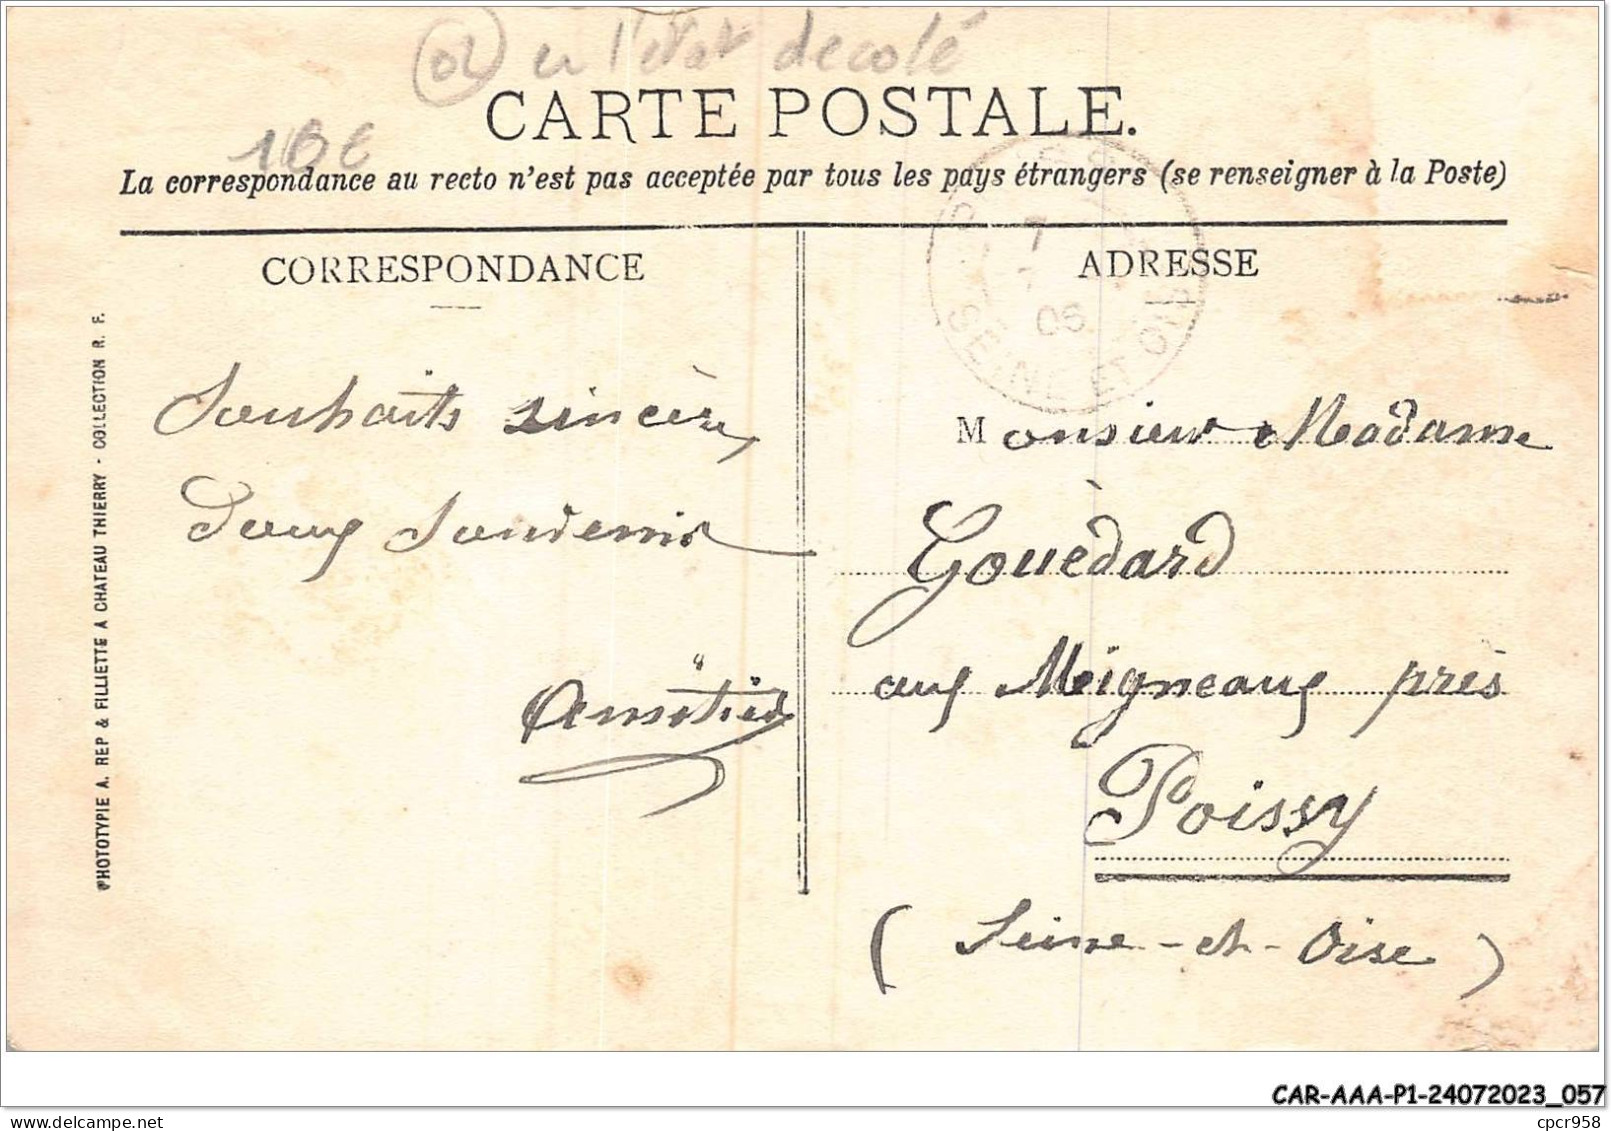 02 en l'état decolé
CARTE POSTALE.
10€
La correspondance au recto n'est pas acceptée par tous les pays étrangers (se renseigner à la Poste)
CORRESPONDANCE
Souhaits sincères
Doux Souvenir
ADRESSE
7
06
SEINE ET OISE
Monsieur Madame
Gouèdard
aux Meigneaux près
Poissy
(Seine-et-Oise)
PHOTOTYPIE A. REP & FILLIETTE A CHATEAU THIERRY - COLLECTION R. F.
CAR-AAA-P1-24072023_057
cpcr958